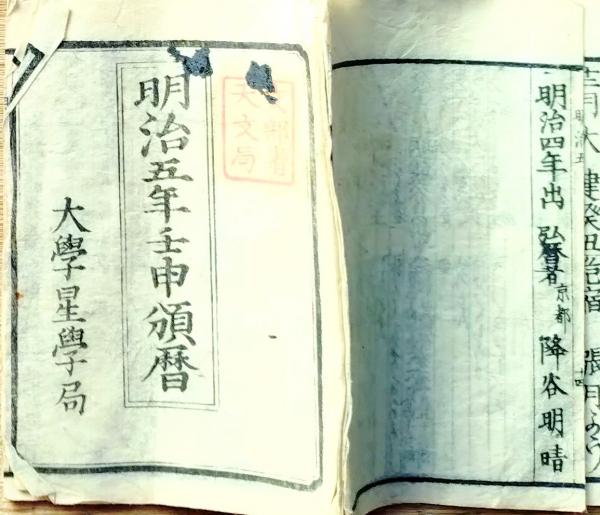 明治五
十四
明治四年出 弘暦者 京都 降谷明晴
文部省
天文局
明治五年壬申頒暦
大學星學局